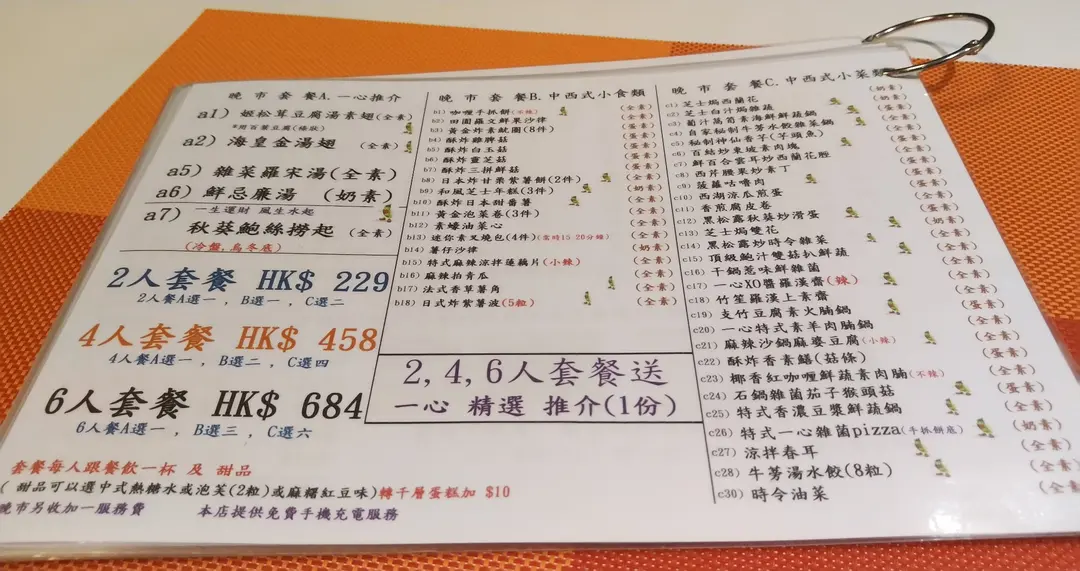 晚市套餐A.一心推介
a1) 姬松茸豆腐湯素翅(全素)
*用百葉豆腐(條狀)
a2) 海皇金湯翅 (全素)
a5) 雜菜羅宋湯(全素)
a6) 鮮忌廉湯 (奶素)
a7) 一生運財 風生水起
秋葵鮑絲撈起 (全素)
(冷盤,烏冬底)
2人套餐 HK$ 229
2人餐A選一 , B選一 , C選二
4人套餐 HK$ 458
4人餐A選一 , B選二 , C選四
6人套餐 HK$ 684
6人餐A選一 , B選三 , C選六
套餐每人跟餐飲一杯 及 甜品
( 甜品可以選中式熱糖水或泡芙(2粒)或麻糬紅豆味)轉千層蛋糕加 $10
晚市另收加一服務費 本店提供免費手機充電服務
晚市套餐B.中西式小食類
b1) 咖喱手抓餅(不辣) (全素)
b2) 田園羅文鮮果沙律 (全素)
b3) 黃金炸素魷圈(8件) (蛋素)
b4) 酥炸雞脾菇 (全素)
b5) 酥炸白玉菇 (全素)
b6) 酥炸靈芝菇 (全素)
b7) 酥炸三拼鮮菇 (全素)
b8) 日本炸甘栗紫薯餅(2件) (全素)
b9) 和風芝士年糕(3件) (奶素)
b10) 酥炸日本甜番薯 (全素)
b11) 黃金泡菜卷(3件) (全素)
b12) 素蠔油菜心 (全素)
b13) 迷你素叉燒包(4件)(需時15-20分鐘) (全素)
b14) 薯仔沙律 (奶素)
b15) 特式麻辣涼拌蓮藕片(小辣) (全素)
b16) 麻辣拍青瓜 (全素)
b17) 法式香草薯角 (全素)
b18) 日式炸紫薯波(5粒) (全素)
2,4,6人套餐送
一心 精選 推介(1份)
晚市套餐C.中西式小菜類
c1) 芝士焗西蘭花 (奶素)
c2) 芝士白汁焗雜蔬 (奶素)
c3) 葡汁萬筍素海鮮鮮蔬 (奶素)
c4) 自家秘制牛蒡水餃雜菜鍋 (全素)
c5) 秘制神仙香芋(芋頭魚) (全素)
c6) 百結炒東坡素肉塊 (蛋素)
c7) 鮮百合雲耳炒西蘭花脛 (全素)
c8) 西芹腰果炒素丁 (蛋素)
c9) 菠蘿咕嚕肉 (蛋素)
c10) 西湖涼瓜煎蛋 (蛋素)
c11) 香煎腐皮卷 (全素)
c12) 黑松露秋葵炒滑蛋 (蛋素)
c13) 芝士焗雙花 (奶素)
c14) 黑松露炒時令雜菜 (全素)
c15) 頂級鮑汁雙菇扒鮮蔬 (全素)
c16) 干鍋惹味鮮雜菌 (全素)
c17) 一心XO醬羅漢齋(辣) (全素)
c18) 竹笙羅漢上素齋 (全素)
c19) 支竹豆腐素火腩鍋 (全素)
c20) 一心特式素羊肉腩鍋 (全素)
c21) 麻辣沙鍋麻婆豆腐(小辣) (全素)
c22) 酥炸香素鱔(菇條) (全素)
c23) 椰香紅咖喱鮮蔬素肉腩(不辣) (蛋素)
c24) 石鍋雜菌茄子猴頭菇 (全素)
c25) 特式香濃豆漿鮮蔬鍋 (全素)
c26) 特式一心雜菌pizza(手抓餅底) (奶素)
c27) 涼拌春耳 (全素)
c28) 牛蒡湯水餃(8粒) (全素)
c30) 時令油菜 (全素